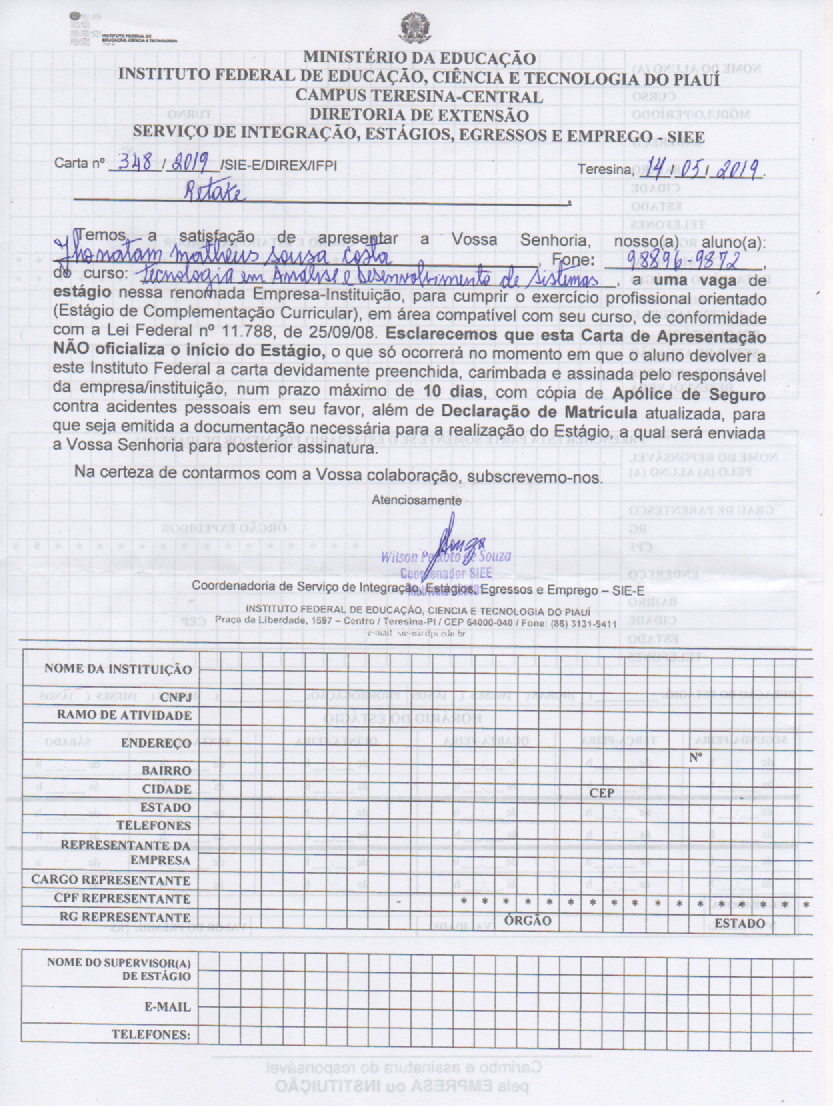 INSTITUTO FEDERAL DE
EDUCAÇÃO, CIÊNCIA E TECNOLOGIA
MINISTÉRIO DA EDUCAÇÃO
INSTITUTO FEDERAL DE EDUCAÇÃO, CIÊNCIA E TECNOLOGIA DO PIAUÍ
CAMPUS TERESINA-CENTRAL
DIRETORIA DE EXTENSÃO
SERVIÇO DE INTEGRAÇÃO, ESTÁGIOS, EGRESSOS E EMPREGO - SIEE
Carta nº 348 / 2019 /SIE-E/DIREX/IFPI Teresina, 14 / 05 / 2019.
Retake
Temos a satisfação de apresentar a Vossa Senhoria, nosso(a) aluno(a):
Jhonatam matheus sousa costa, Fone: 98896-9872,
do curso: Tecnologia em Análise e Desenvolvimento de Sistemas, a uma vaga de
estágio nessa renomada Empresa-Instituição, para cumprir o exercício profissional orientado
(Estágio de Complementação Curricular), em área compatível com seu curso, de conformidade
com a Lei Federal nº 11.788, de 25/09/08. Esclarecemos que esta Carta de Apresentação
NÃO oficializa o início do Estágio, o que só ocorrerá no momento em que o aluno devolver a
este Instituto Federal a carta devidamente preenchida, carimbada e assinada pelo responsável
da empresa/instituição, num prazo máximo de 10 dias, com cópia de Apólice de Seguro
contra acidentes pessoais em seu favor, além de Declaração de Matrícula atualizada, para
que seja emitida a documentação necessária para a realização do Estágio, a qual será enviada
a Vossa Senhoria para posterior assinatura.
Na certeza de contarmos com a Vossa colaboração, subscrevemo-nos.
Atenciosamente
Wilson Peixoto de Souza
Coordenador SIEE
Coordenadoria de Serviço de Integração, Estágios, Egressos e Emprego – SIE-E
INSTITUTO FEDERAL DE EDUCAÇÃO, CIENCIA E TECNOLOGIA DO PIAUÍ
Praça da Liberdade, 1597 – Centro / Teresina-PI / CEP 64000-040 / Fone: (86) 3131-9411
NOME DA INSTITUIÇÃO
CNPJ
RAMO DE ATIVIDADE
ENDEREÇO
Nº
BAIRRO
CIDADE CEP
ESTADO
TELEFONES
REPRESENTANTE DA
EMPRESA
CARGO REPRESENTANTE
CPF REPRESENTANTE - * * * * * * * * * * * * * * * * *
RG REPRESENTANTE ÓRGÃO ESTADO
NOME DO SUPERVISOR(A)
DE ESTÁGIO
E-MAIL
TELEFONES: